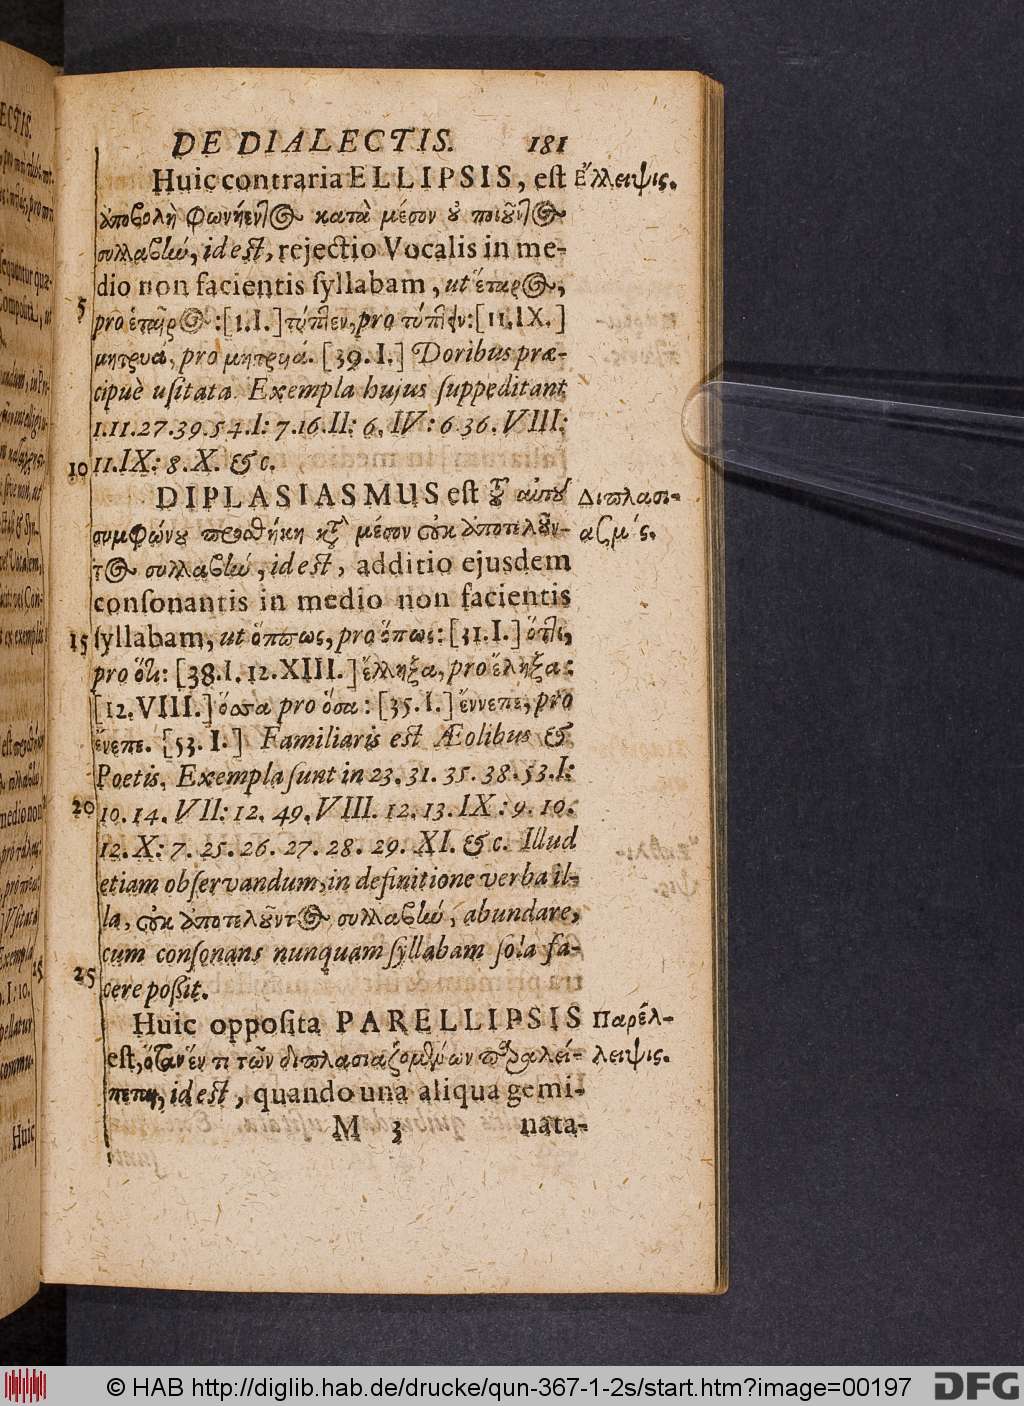 DE DIALECTIS. 181
Huic contraria ELLIPSIS, eſt Ἔλλειψις.
ἀποβολὴ φωνήεντος κατὰ μέσον οὐ ποιοῦντος
συλλαβὼ, id est, rejectio Vocalis in me-
dio non facientis ſyllabam, ut ἕταρος,
5 pro ἑταῖρος: [1.I.] τύπτεν, pro τύπτειν: [11.IX.]
μητρυά, pro μητρυιά. [39.I.] Doribus præ-
cipuè uſitata. Exempla hujus ſuppeditant
1.11.27.39.54.I: 7.16.II: 6. IV: 6 36. VIII:
10 11.IX: 8. X. &c.
DIPLASIASMUS eſt τοῦ αὐτοῦ Διπλασι-
συμφώνου προσθήκη κατὰ μέσον οὐκ ἀποτελοῦν- ασμός.
τος συλλαβὼ, id est, additio ejusdem
conſonantis in medio non facientis
15 ſyllabam, ut ὅππως, pro ὅπως: [31.I.] ὅττι,
pro ὅτι: [38.I. 12.XIII.] ἔλληξα, pro ἔληξα:
[12.VIII.] ὅσσα pro ὅσα: [35.I.] ἔννεπε, pro
ἔνεπε. [53.I.] Familiaris est Æolibus &
Poetis. Exempla ſunt in 23. 31. 35. 38. 53. I:
20 10. 14. VII: 12. 49. VIII. 12. 13. IX: 9. 10.
12. X: 7. 25. 26. 27. 28. 29. XI. &c. Illud
etiam obſervandum, in definitione verba il-
la, οὐκ ἀποτελοῦντος συλλαβὼ, abundare,
cum conſonans nunquam ſyllabam ſola fa-
25 cere poßit.
Huic oppoſita PARELLIPSIS Παρέλ-
est, ὅταν ἕν τι τῶν διπλασιαζομένων παραλεί- λειψις.
id est, quando una aliqua gemi-
M 3 nata-
Huic
© HAB http://diglib.hab.de/drucke/qun-367-1-2s/start.htm?image=00197 DFG